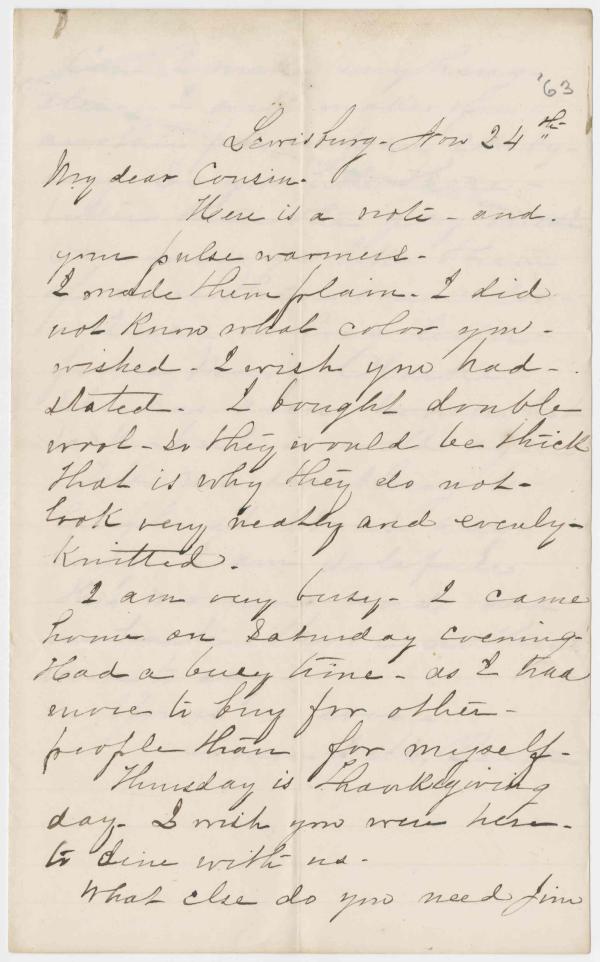 '63
Lewisburg - Nov 24th
My dear Cousin.
Here is a note - and.
your pulse warmers.
I made them plain. I did
not know what color you -
wished - I wish you had -
stated. I bought double
wool - so they would be thick
that is why they do not -
look very neatly and evenly -
Knitted.
I am very busy - I came
home on Saturday evening.
Had a busy time - as I had
more to buy for other -
people than for myself -
Thursday is Thanksgiving
day. I wish you were here -
to dine with us.
What else do you need Jim